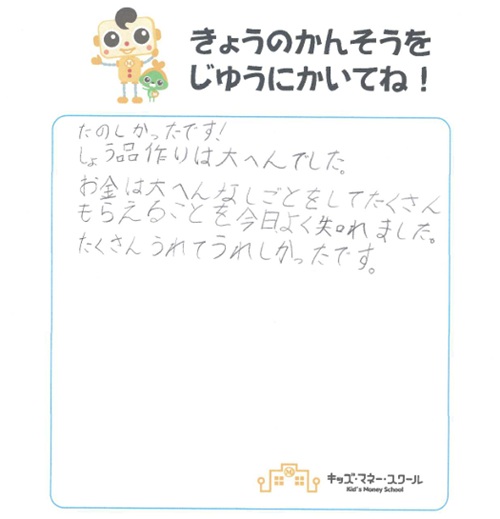 きょうのかんそうを
じゆうにかいてね！
たのしかったです!
しょう品作りは大へんでした。
お金は大へんなしごとをしてたくさん
もらえることを今日よく知れました。
たくさんうれてうれしかったです。
キッズ・マネー・スクール
Kid's Money School